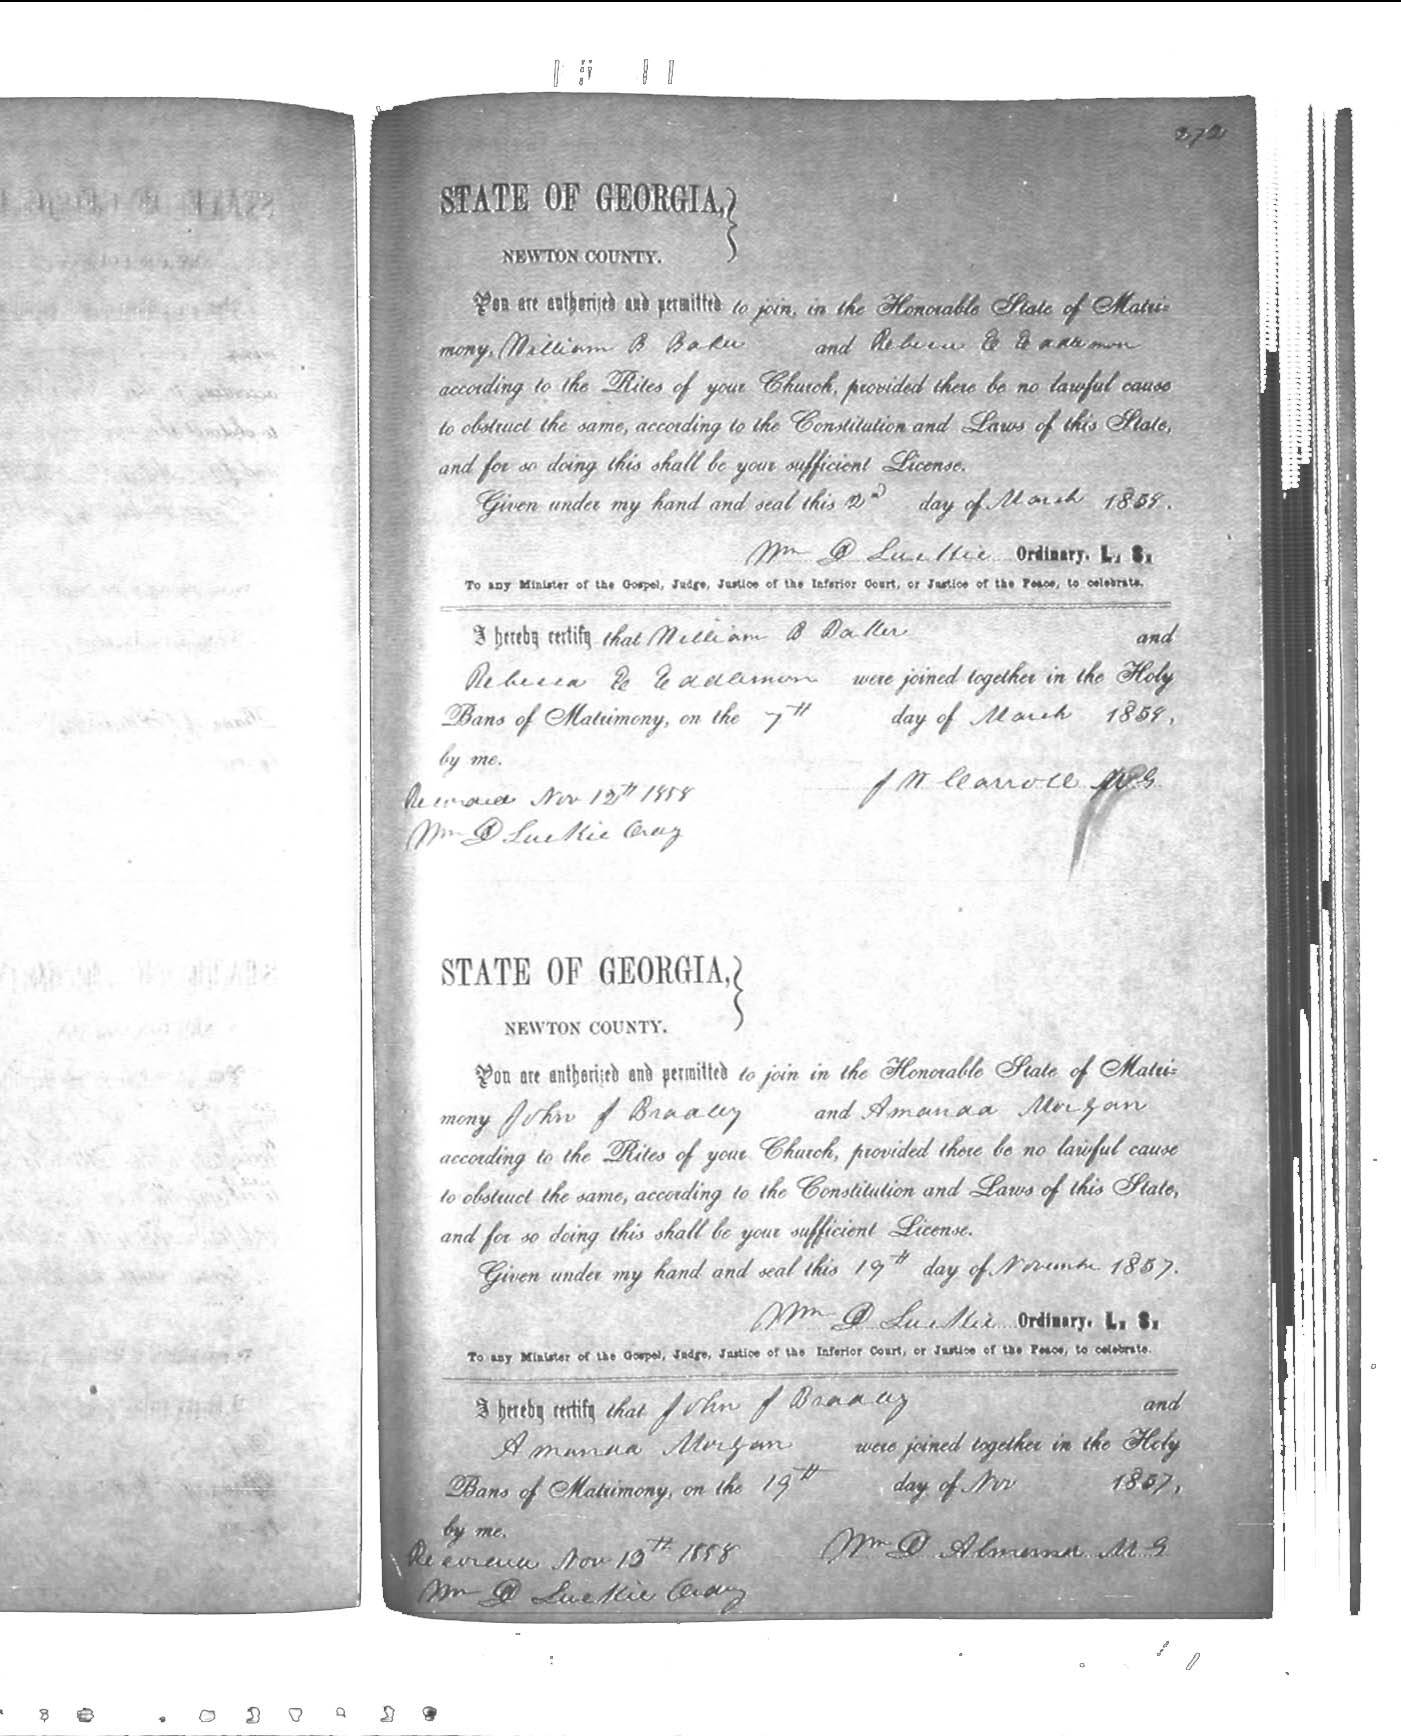 272
STATE OF GEORGIA,
NEWTON COUNTY.
You are authorized and permitted to join, in the Honorable State of Matri=
mony, William B Baker and Rebecca E Eddlemon
according to the Rites of your Church, provided there be no lawful cause
to obstruct the same, according to the Constitution and Laws of this State,
and for so doing this shall be your sufficient License.
Given under my hand and seal this 2nd day of March 1858.
Wm D Luckie Ordinary. L. S.
To any Minister of the Gospel, Judge, Justice of the Inferior Court, or Justice of the Peace, to celebrate.
I hereby certify that William B Baker and
Rebecca E Eddlemon were joined together in the Holy
Bans of Matrimony, on the 7th day of March 1858,
by me.
J W Carroll MG
Recorded Nov 12th 1858
Wm D Luckie Ordy
STATE OF GEORGIA,
NEWTON COUNTY.
You are authorized and permitted to join in the Honorable State of Matri=
mony John J Bradley and Amanda Morgan
according to the Rites of your Church, provided there be no lawful cause
to obstruct the same, according to the Constitution and Laws of this State,
and for so doing this shall be your sufficient License.
Given under my hand and seal this 19th day of November 1857.
Wm D Luckie Ordinary. L. S.
To any Minister of the Gospel, Judge, Justice of the Inferior Court, or Justice of the Peace, to celebrate.
I hereby certify that John J Bradley and
Amanda Morgan were joined together in the Holy
Bans of Matrimony, on the 19th day of Nov 1857,
by me.
Wm D Almond M G
Recorded Nov 13th 1858
Wm D Luckie Ordy